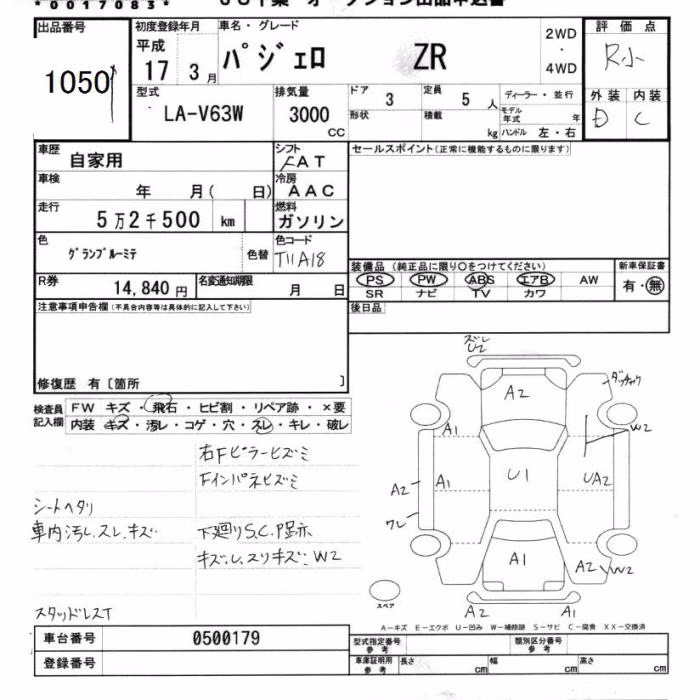 *0017083*
出品番号 初度登録年月 車名・グレード 2WD・4WD 評価点
1050 平成17年3月 パジェロ ZR R小
型式 排気量 ドア 3 定員 5人 ディーラー・並行 外装 内装
LA-V63W 3000CC 形状 積載 kg モデル年式 年 D C
ハンドル 左・右
車歴 自家用 シフト FAT セールスポイント(正常に機能するものに限ります)
車検 年 月( 日) 冷房 AAC
走行 5万2千500 km 燃料 ガソリン
色 グランブルーミテ 色替 色コード T11A18
装備品(純正品に限り○をつけてください) 新車保証書
PS PW ABS エアB AW 有・無
SR ナビ TV カワ
R券 14,840円 名変通知期限 月 日 後日品
注意事項申告欄(不具合内容等は具体的に記入して下さい)
修復歴 有〔箇所 〕
検査員記入欄 FW キズ・飛石・ヒビ割・リペア跡・×要
内装 キズ・汚レ・コゲ・穴・スレ・キレ・破レ
右Fピラーヒズミ
Fインパネヒズミ
シートヘタリ
車内汚レ.スレ.キズ 下廻りS.C.P跡
キズ.レ.スリキズ.W2
スタッドレスT
ズレ
U2
A2
A1 W2
A2 A1 U1 UA2
ワレ
A1 A2 W2
スペア A2 A1
A-キズ E-エクボ U-凹み W-補修跡 S-サビ C-腐食 XX-交換済
車台番号 0500179 型式指定番号 参考 類別区分番号 参考
登録番号 車庫証明用 参考 長さ cm 幅 cm 高さ cm